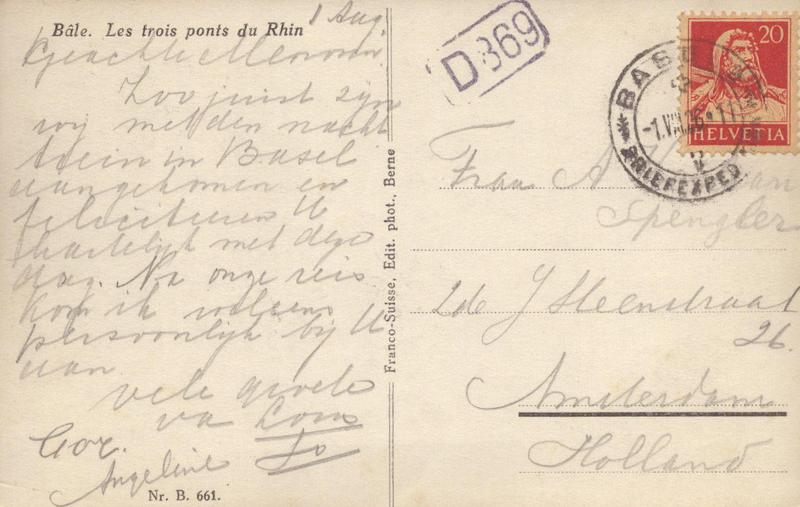 Bâle. Les trois ponts du Rhin
1 Aug.
Geachte Mevrouw
Zoo juist zijn
wij met den nacht
trein in Basel
aangekomen en
feliciteeren U
hartelijk met deze
dag. Na onze reis
kom ik weleens
persoonlijk bij U
aan
vele groete
va
Jo
Cor.
Angeline
Nr. B. 661.
Franco-Suisse, Edit. phot., Berne
D 869
BASEL
BRIEFEXPED
20
HELVETIA
Frau A van
Spengler
2de J Steenstraat
26.
Amsterdam
Holland